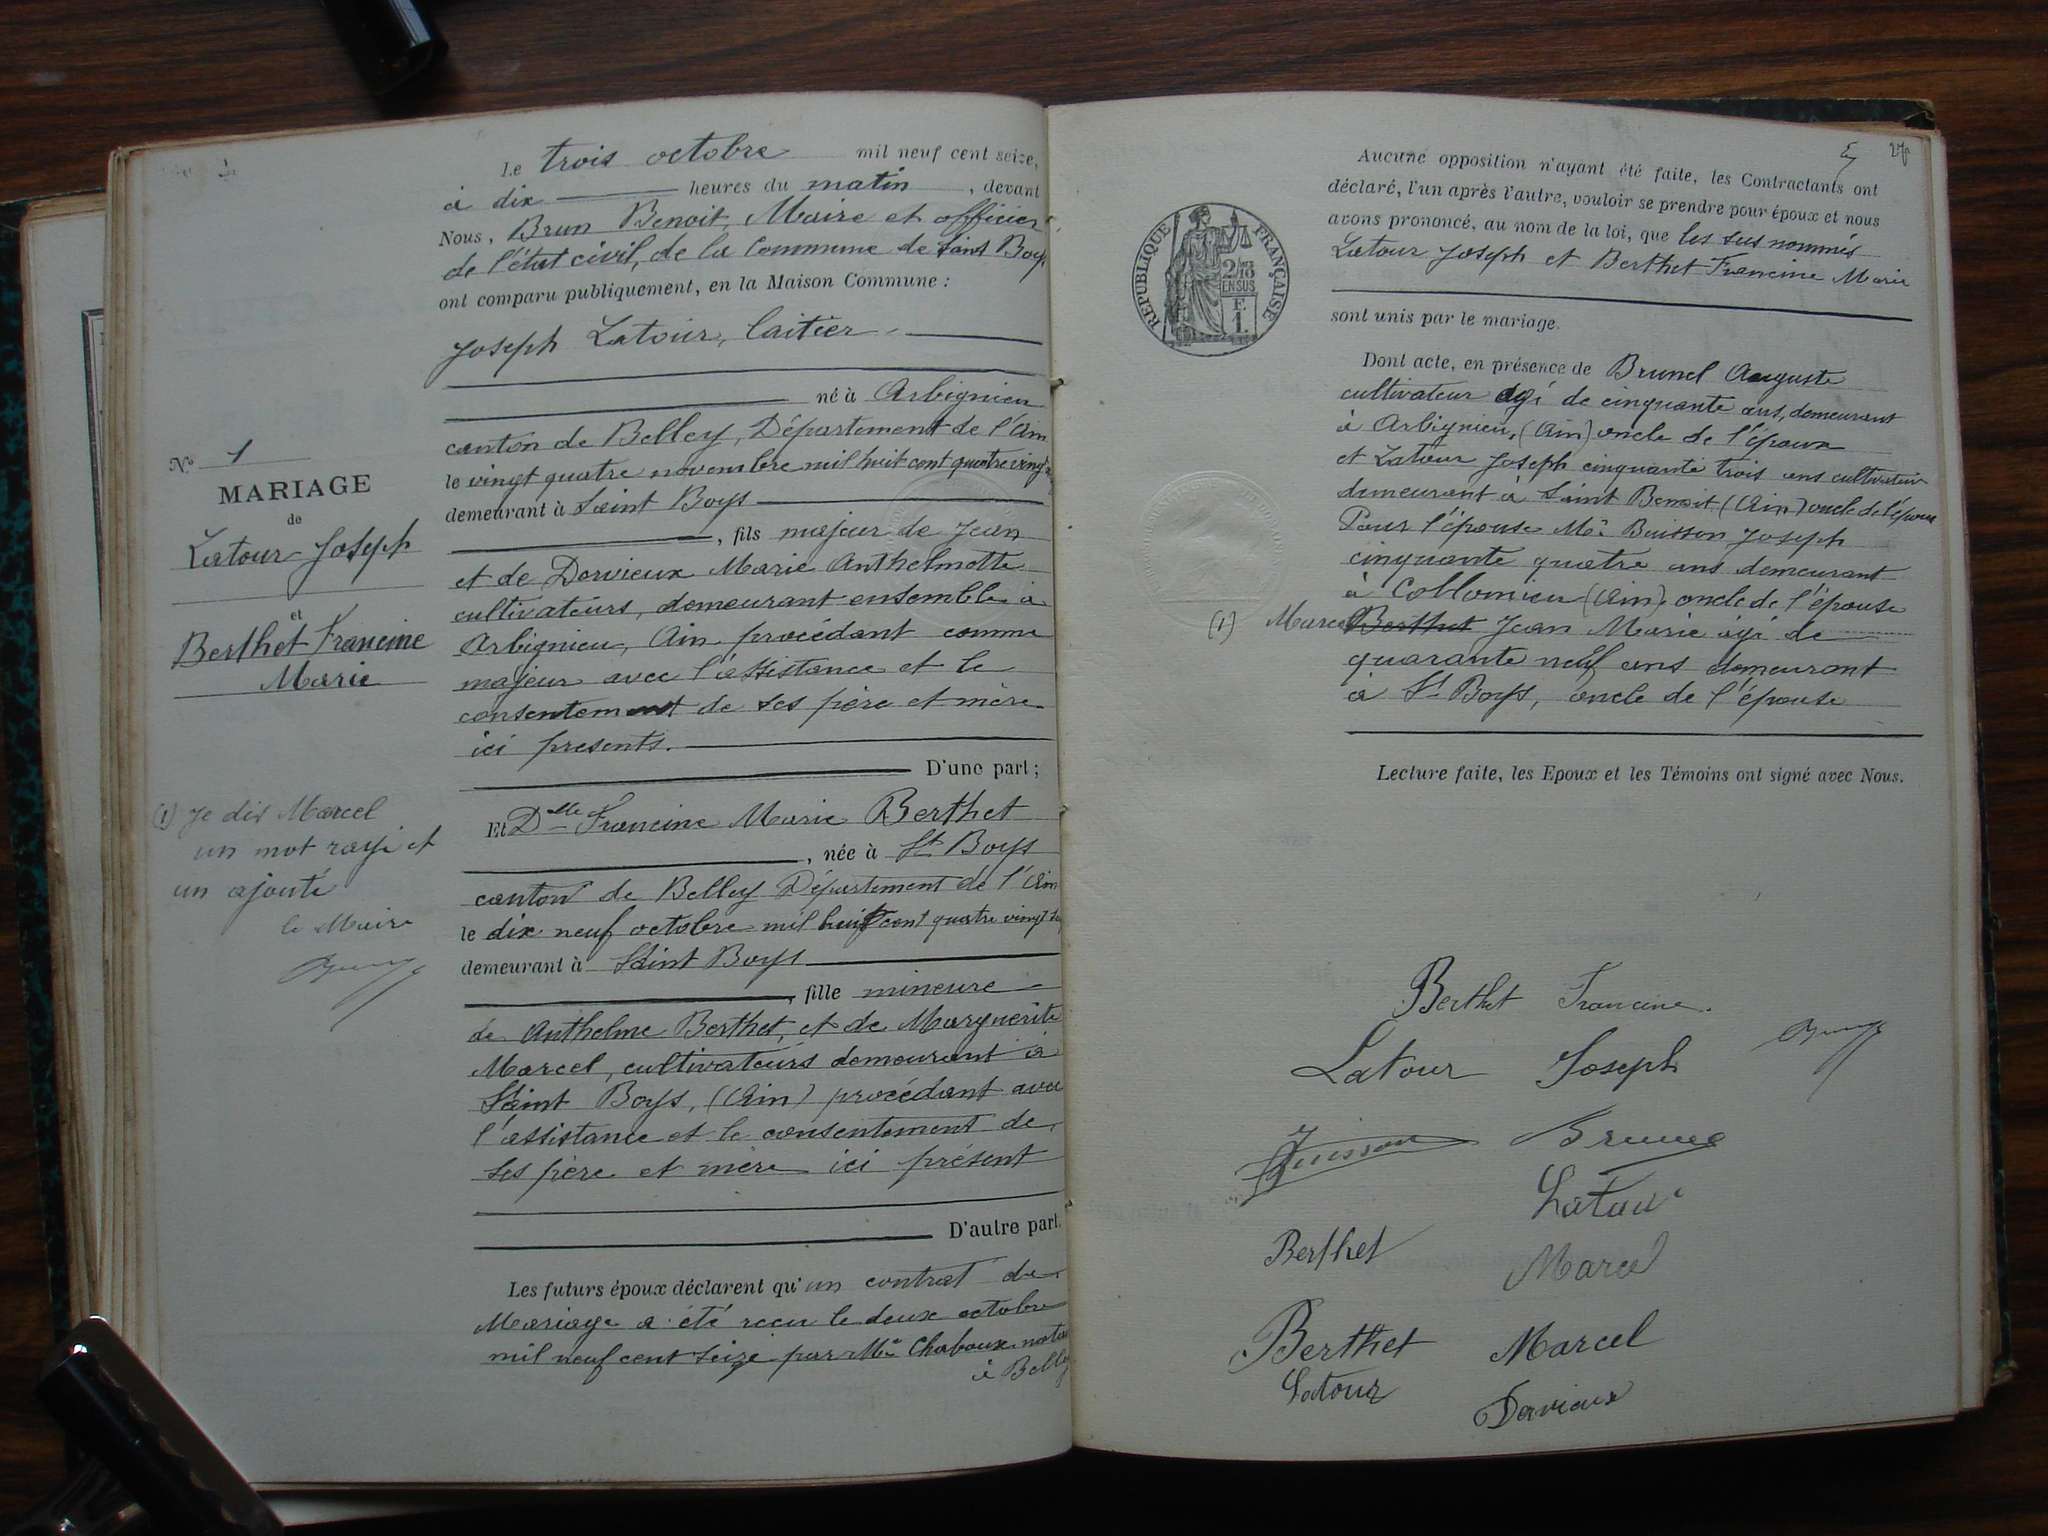 Le trois octobre mil neuf cent seize,
à dix heures du matin, devant
Nous, Brun Benoit, Maire et officier
de l'état civil, de la Commune de Saint Boys
ont comparu publiquement, en la Maison Commune :
Joseph Latour, laitier
né à Arbignieu
canton de Belley, Département de l'Ain
le vingt quatre novembre mil huit cent quatre vingt
demeurant à Saint Boys
, fils majeur de Jean
et de Dervieux Marie Anthelmette
cultivateurs, demeurant ensemble à
Arbignieu, Ain procédant comme
majeur avec l'assistance et le
consentement de ses père et mère
ici presents.
D'une part ;
Et Dlle Francine Marie Berthet
, née à St Boys
canton de Belley Département de l'Ain
le dix neuf octobre mil huit cent quatre vingt
demeurant à Saint Boys
, fille mineure
de Anthelme Berthet, et de Marguerite
Marcel, cultivateurs demeurant à
Saint Boys, (Ain) procédant avec
l'assistance et le consentement de
ses père et mère ici présent
D'autre part.
Les futurs époux déclarent qu'un contrat de
Mariage a été recu le deux octobre
mil neuf cent seize par Me Chaboux
à Belley
No 1
MARIAGE
de
Latour Joseph
et
Berthet Francine
Marie
(1) Je dis Marcel
un mot rayé et
un ajouté
le Maire
27
Aucune opposition n'ayant été faite, les Contractants ont
déclaré, l'un après l'autre, vouloir se prendre pour époux et nous
avons prononcé, au nom de la loi, que les sus nommés
Latour Joseph et Berthet Francine Marie
sont unis par le mariage.
RÉPUBLIQUE FRANÇAISE
2/10
EN SUS
F.
1.
Dont acte, en présence de Brunel Auguste
cultivateur agé de cinquante ans, demeurant
à Arbignieu, (Ain) oncle de l'époux
et Latour Joseph cinquante trois ans cultivateur
demeurant à Saint Benoit (Ain) oncle de l'époux
Pour l'épouse Mr Buisson Joseph
cinquante quatre ans demeurant
à Collomieu (Ain), oncle de l'épouse
(1) Marcel Berthet Jean Marie âgé de
quarante neuf ans demeurant
à St Boys, oncle de l'épouse
Lecture faite, les Epoux et les Témoins ont signé avec Nous.
Berthet Francine.
Latour Joseph
Buisson Brunel
Latour
Berthet
Marcel
Berthet Marcel
Latour
Dervieux